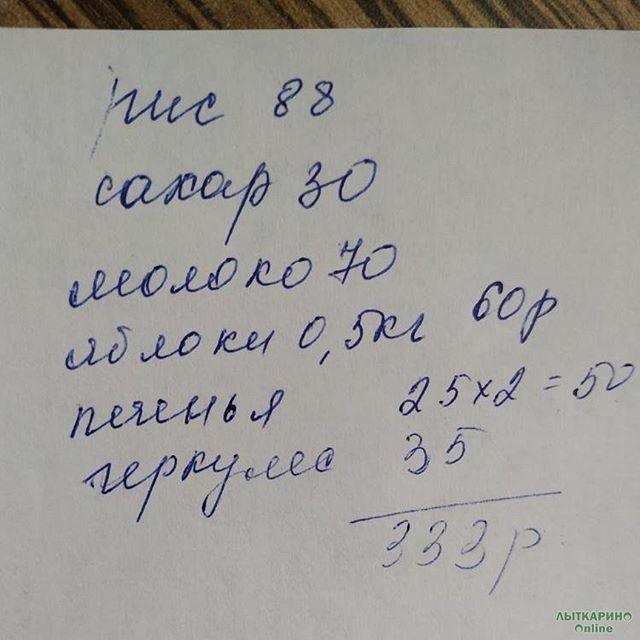 рис 88
сахар 30
молоко 70
яблоки 0,5кг 60р
печенья 25×2=50
геркулес 35
333р
ЛЫТКАРИНО
Online